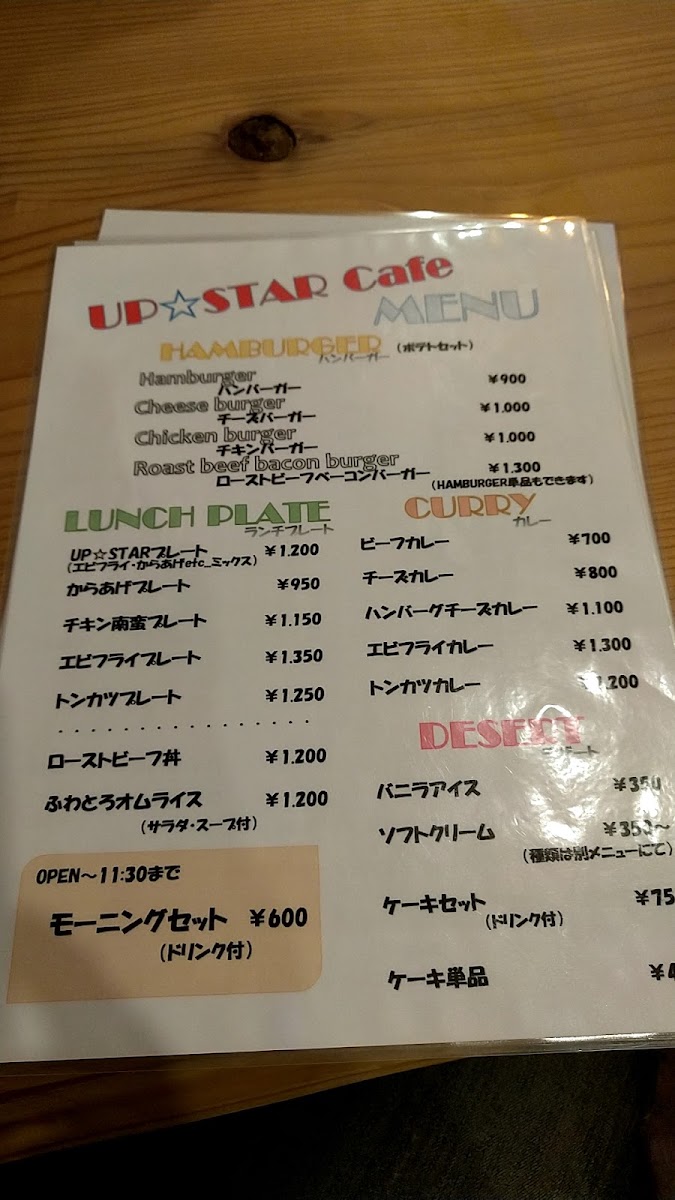 UP☆STAR Cafe
MENU
HAMBURGER (ポテトセット)
ハンバーガー
Hamburger ¥900
ハンバーガー
Cheese burger ¥1.000
チーズバーガー
Chicken burger ¥1.000
チキンバーガー
Roast beef bacon burger ¥1.300
ローストビーフベーコンバーガー (HAMBURGER単品もできます)
LUNCH PLATE
ランチプレート
UP☆STARプレート ¥1.200
(エビフライ・からあげetc_ミックス)
からあげプレート ¥950
チキン南蛮プレート ¥1.150
エビフライプレート ¥1.350
トンカツプレート ¥1.250
ローストビーフ丼 ¥1.200
ふわとろオムライス ¥1.200
(サラダ・スープ付)
OPEN～11:30まで
モーニングセット ¥600
(ドリンク付)
CURRY
カレー
ビーフカレー ¥700
チーズカレー ¥800
ハンバーグチーズカレー ¥1.100
エビフライカレー ¥1.300
トンカツカレー .200
DESERT
デザート
バニラアイス ¥350
ソフトクリーム ¥350～
(種類は別メニューにて)
ケーキセット ¥75
(ドリンク付)
ケーキ単品 ¥4